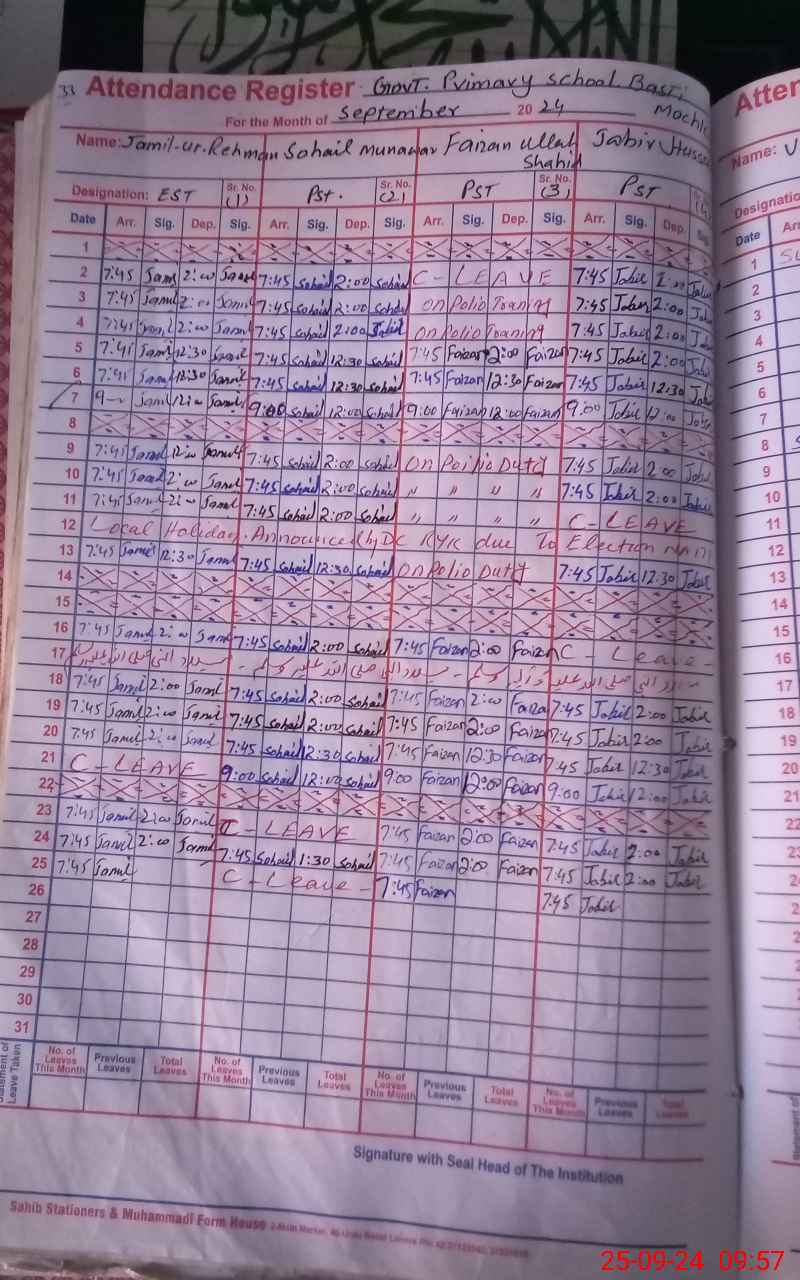 33 Attendance Register Govt. Primary School Basti
For the Month of September 2024 Mochi
Name: Jamil-ur-Rehman Sohail Munawar Faizan Ullah Shahid Jabir Hussa
Designation: EST Sr. No. (1) Pst. Sr. No. (2) PST Sr. No. (3) PST
Date Arr. Sig. Dep. Sig. Arr. Sig. Dep. Sig. Arr. Sig. Dep. Sig. Arr. Sig. Dep. Sig.
1
2 7:45 Jamil 2:00 Jamil 7:45 Sohail 2:00 Sohail C - LEAVE 7:45 Jabir 2:00 Jabir
3 7:45 Jamil 2:00 Jamil 7:45 Sohail 2:00 Sohail on Polio Traning 7:45 Jabir 2:00 Jabir
4 7:45 Jamil 2:00 Jamil 7:45 Sohail 2:00 Jabir on Polio Traning 7:45 Jabir 2:00 Jabir
5 7:45 Jamil 12:30 Jamil 7:45 Sohail 12:30 Sohail 7:45 Faizan 2:00 Faizan 7:45 Jabir 2:00 Jabir
6 7:45 Jamil 12:30 Jamil 7:45 Sohail 12:30 Sohail 7:45 Faizan 12:30 Faizan 7:45 Jabir 12:30 Jabir
7 9- Jamil 12:00 Jamil 9:00 Sohail 12:00 Sohail 9:00 Faizan 12:00 Faizan 9:00 Jabir 12:00 Jabir
8
9 7:45 Jamil 12:00 Jamil 7:45 Sohail 2:00 Sohail On Poilio Duty 7:45 Jabir 2:00 Jabir
10 7:45 Jamil 2:00 Jamil 7:45 Sohail 2:00 Sohail " " " " 7:45 Jabir 2:00 Jabir
11 7:45 Jamil 2:00 Jamil 7:45 Sohail 2:00 Sohail " " " " C - LEAVE
12 Local Holiday. Announced by DC RYK due To Election
13 7:45 Jamil 12:30 Jamil 7:45 Sohail 12:30 Sohail On Polio Duty 7:45 Jabir 12:30 Jabir
14
15
16 7:45 Jamil 2:00 Jamil 7:45 Sohail 2:00 Sohail 7:45 Faizan 2:00 Faizan C - Leave
17
18 7:45 Jamil 2:00 Jamil 7:45 Sohail 2:00 Sohail 7:45 Faizan 2:00 Faizan 7:45 Jabir 2:00 Jabir
19 7:45 Jamil 2:00 Jamil 7:45 Sohail 2:00 Sohail 7:45 Faizan 2:00 Faizan 7:45 Jabir 2:00 Jabir
20 7:45 Jamil 2:00 Jamil 7:45 Sohail 12:30 Sohail 7:45 Faizan 12:30 Faizan 7:45 Jabir 12:30 Jabir
21 C - LEAVE 9:00 Sohail 12:00 Sohail 9:00 Faizan 12:00 Faizan 9:00 Jabir 12:00 Jabir
22
23 7:45 Jamil 2:00 Jamil C - LEAVE 7:45 Faizan 2:00 Faizan 7:45 Jabir 2:00 Jabir
24 7:45 Jamil 2:00 Jamil 7:45 Sohail 1:30 Sohail 7:45 Faizan 2:00 Faizan 7:45 Jabir 2:00 Jabir
25 7:45 Jamil C - Leave - 7:45 Faizan 7:45 Jabir
26
27
28
29
30
31
Statement of Leave Taken No. of Leaves This Month Previous Leaves Total Leaves No. of Leaves This Month Previous Leaves Total Leaves No. of Leaves This Month Previous Leaves Total Leaves No. of Leaves This Month Previous Leaves Total Leaves
Signature with Seal Head of The Institution
Sahib Stationers & Muhammadi Form House
Atter
Name:
Designatio
Date Arr
1
2
3
4
5
6
7
8
9
10
11
12
13
14
15
16
17
18
19
20
21
22
25-09-24 09:57